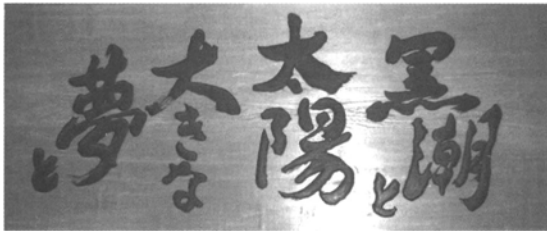 黒潮と
太陽
大きな
夢と